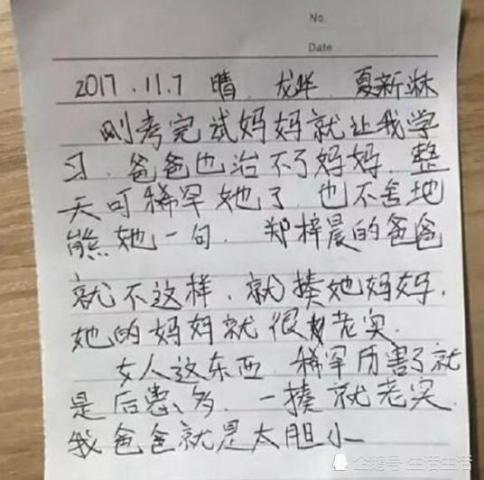 No.
Date
2017.11.7 晴 龙华 夏新淋
刚考完试妈妈就让我学
习.爸爸也治不了妈妈.整
天可稀罕她了.也不舍地
熊她一句.郑梓晨的爸爸
就不这样.就揍她妈妈.
她的妈妈就很老实.
女人这东西.稀罕历害了就
是后患多.一揍就老实.
我爸爸就是太胆小
企鹅号 生活生活